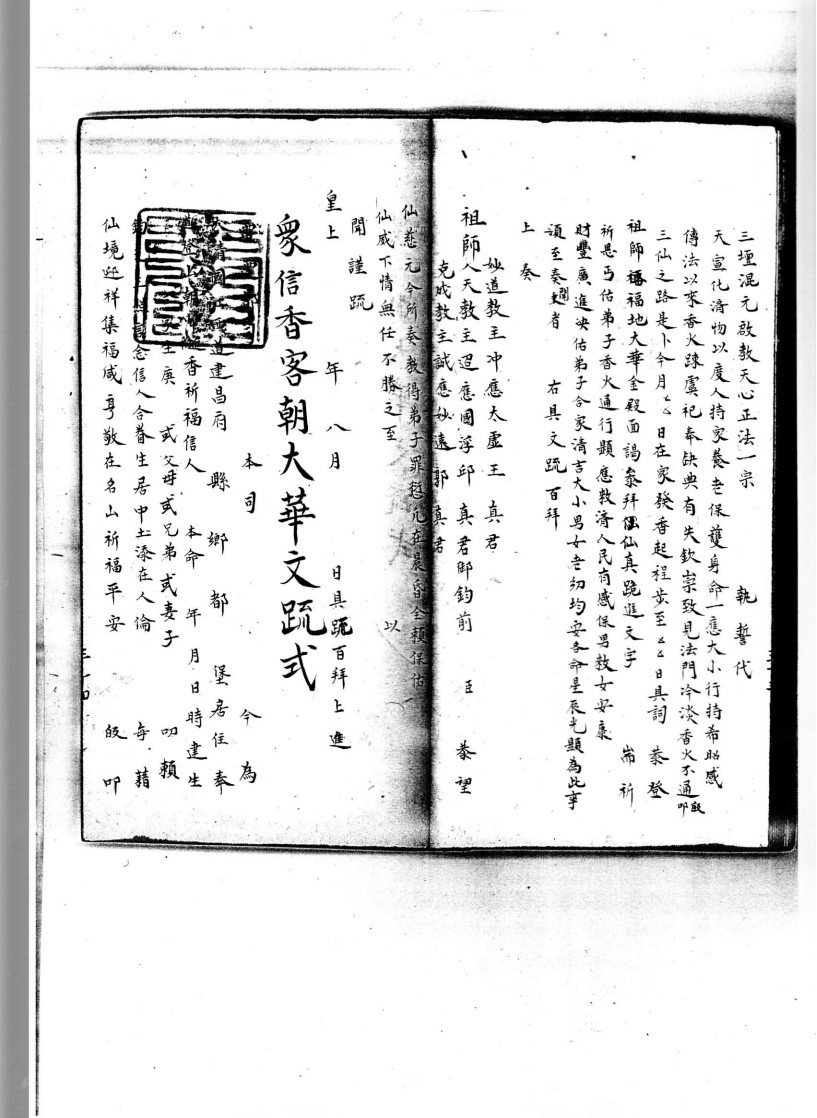 三壇混元啟教天心正法一宗　執誓代
天宣化濟物以度人持家養老保護身命一應大小行持希昭感
傳法以來香火踈虞祀奉缺典有失欽崇致見法門冷淡香火不通皈叩
三仙之路是卜今月厶厶日在家發香起程步至厶厶日具詞　恭登
祖師福地大華金殿面謁叅拜仙真跪進文字　耑祈
祈恩丐佑弟子香火通行顯應救濟人民有感保男救女安康
財豐廣進決佑弟子合家清吉大小男女老幼均安各命星辰光顯為此事
須至奏聞者　右具文疏百拜
上奏
妙道教主冲應太虛王　真君
祖師人天教主迢應國浮邱　真君御鈞前　臣　恭望
克成教主誠應妙遠郭　真君
仙慈元令所奏救得弟子罪愆兀在晨昏全賴保佑
仙威下情無任不勝之至　以
聞謹疏
皇上　年　八月　日具疏百拜上進
眾信香客朝大華文疏式
本司　今為
道建昌府　縣　鄉　都　堡居住奉
香祈福信人　本命　年　月　日　時建生
庚　或父母或兄弟或妻子　叩賴
念信人合眷生居中土添在人倫　每藉
仙境迎祥集福咸亨敬在名山祈福平安　皈叩